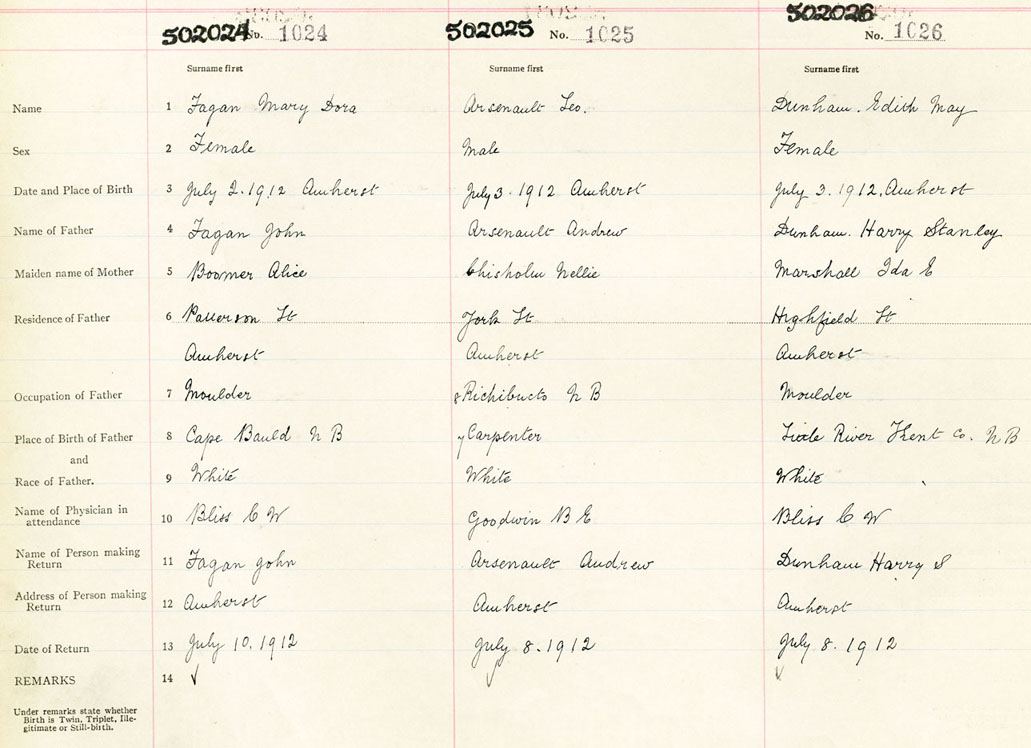 502024 No. 1024 502025 No. 1025 502026 No. 1026
Surname first Surname first Surname first
Name 1 Fagan Mary Dora Arsenault Leo. Dunham. Edith May
Sex 2 Female Male Female
Date and Place of Birth 3 July 2. 1912 Amherst July 3. 1912 Amherst July 3. 1912. Amherst
Name of Father 4 Fagan John Arsenault Andrew Dunham. Harry Stanley
Maiden name of Mother 5 Boomer Alice Chisholm Nellie Marshall Ida E
Residence of Father 6 Patterson St York St Highfield St
Amherst Amherst Amherst
Occupation of Father 7 Moulder 8 Richibucto N B Moulder
Place of Birth of Father 8 Cape Bauld N B 7 Carpenter River Kent Co. N B
and
Race of Father. 9 White White White
Name of Physician in
attendance 10 Bliss C W Goodwin B E Bliss C W
Name of Person making
Return 11 Fagan John Arsenault Andrew Dunham Harry S
Address of Person making
Return 12 Amherst Amherst Amherst
Date of Return 13 July 10. 1912 July 8. 1912 July 8. 1912
REMARKS 14
Under remarks state whether
Birth is Twin, Triplet, Ille-
gitimate or Still-birth.